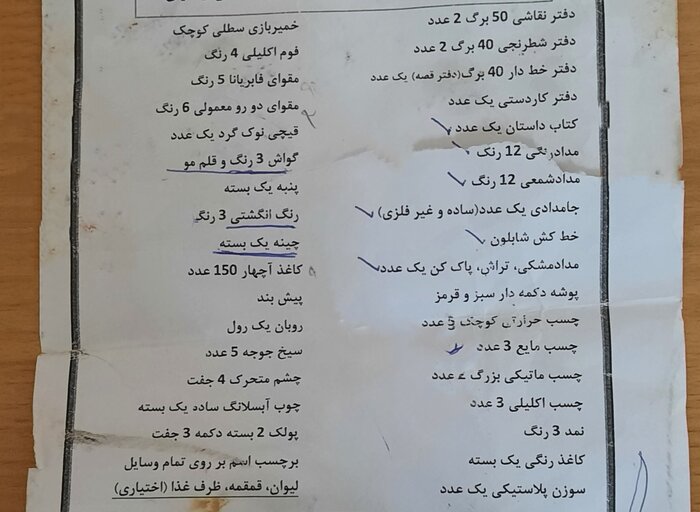 دفتر نقاشی 50 برگ 2 عدد
دفتر شطرنجی 40 برگ 2 عدد
دفتر خط دار 40 برگ(دفتر قصه) یک عدد
دفتر کاردستی یک عدد
کتاب داستان یک عدد
مدادرنگی 12 رنگ
مدادشمعی 12 رنگ
جامدادی یک عدد(ساده و غیر فلزی)
خط کش شابلون
مدادمشکی، تراش، پاک کن یک عدد
پوشه دکمه دار سبز و قرمز
چسب حرارتی کوچک 5 عدد
چسب مایع 3 عدد
چسب ماتیکی بزرگ عدد
چسب اکلیلی 3 عدد
نمد 3 رنگ
کاغذ رنگی یک بسته
سوزن پلاستیکی یک عدد
خمیربازی سطلی کوچک
فوم اکلیلی 4 رنگ
مقوای فابریانا 5 رنگ
مقوای دو رو معمولی 6 رنگ
قیچی نوک گرد یک عدد
گواش 3 رنگ و قلم مو
پنبه یک بسته
رنگ انگشتی 3 رنگ
چینه یک بسته
کاغذ آچهار 150 عدد
پیش بند
روبان یک رول
سیخ جوجه 5 عدد
چشم متحرک 4 جفت
چوب آبسلانگ ساده یک بسته
پولک 2 بسته دکمه 3 جفت
برچسب اسم بر روی تمام وسایل
لیوان، قمقمه، ظرف غذا (اختیاری)